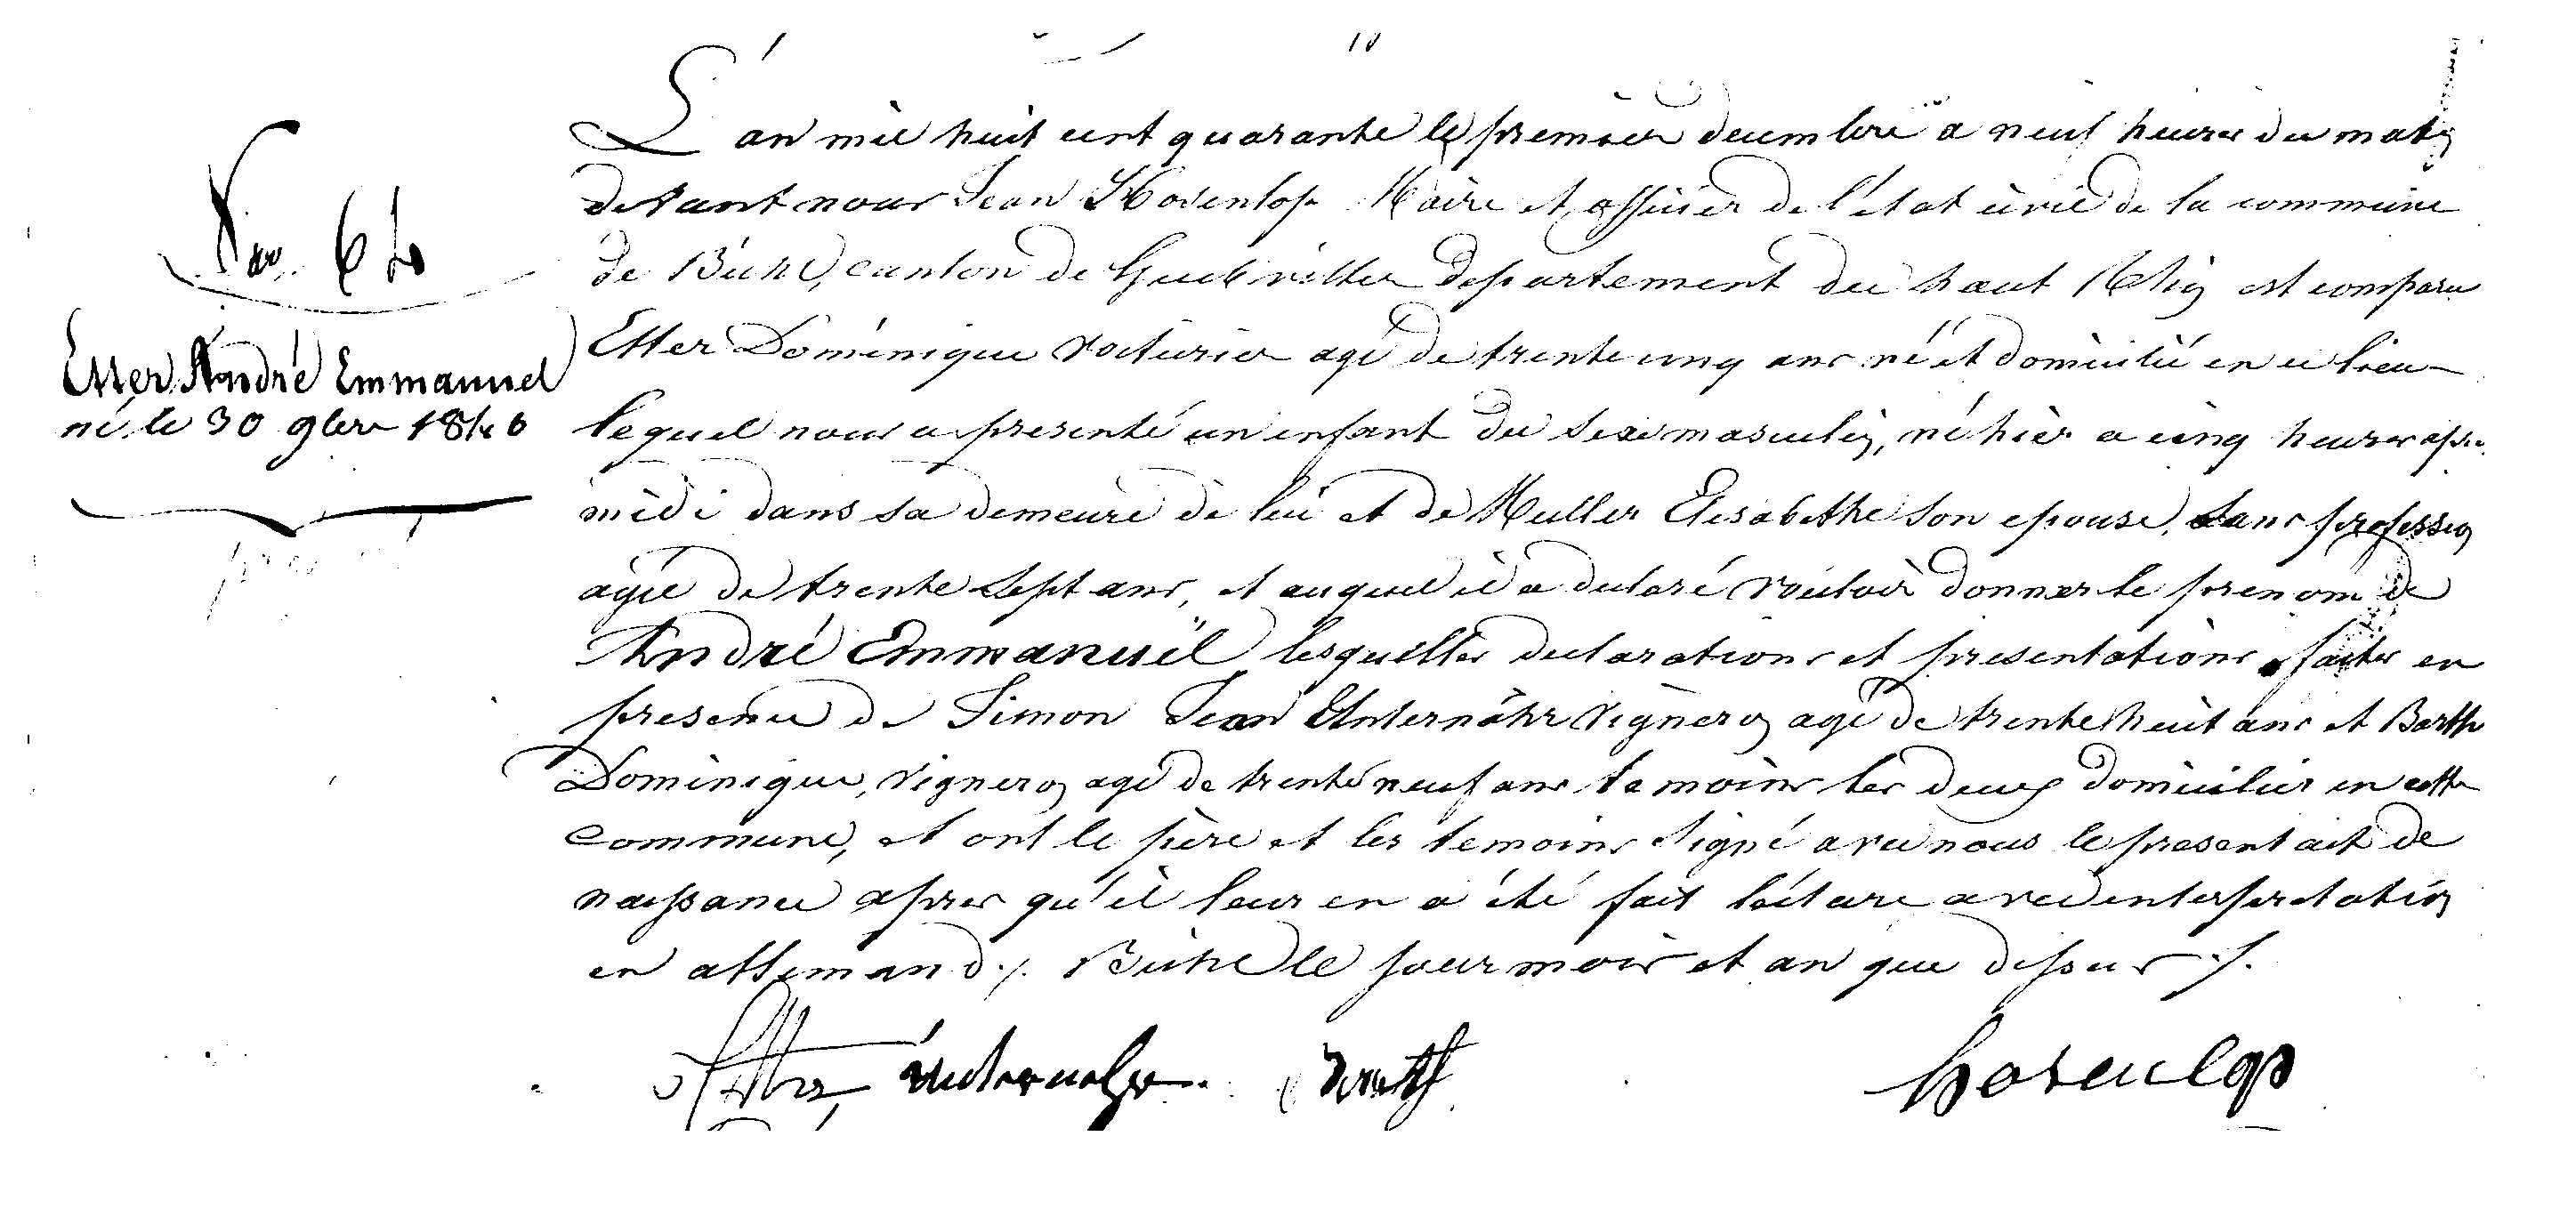 No. 64
Etter André Emmanuel
né le 30 9bre 1840
L'an mil huit cent quarante le premier decembre a neuf heures du matin
devant nous Jean Hosenlop Maire et officier de l'état civil de la commune
de Bühl, canton de Guebviller departement du haut Rhin est comparu
Etter Dominique voiturier agé de trente cinq ans né et domicilié en ce lieu
lequel nous a presenté un enfant du sexe masculin, né hier a cinq heures apres
midi dans sa demeure de lui et de Muller Elisabethe son epouse, sans profession
agée de trente sept ans, et auquel il a declaré vouloir donner le prenom de
André Emmanuel lesquelles declarations et presentations faites en
presence de Simon Jean Unternähr vigneron agé de trente huit ans et Barth
Dominique, vigneron agé de trente neuf ans temoins les deux domiciliés en cette
commune, et ont le père et les temoins signé avec nous le present act de
naissance apres qu'il leur en a été fait lecture avec interpretation
en allemand ./. Bühl le jour mois et an que dessus ./.
Etter Unternahr Barth Hosenlop